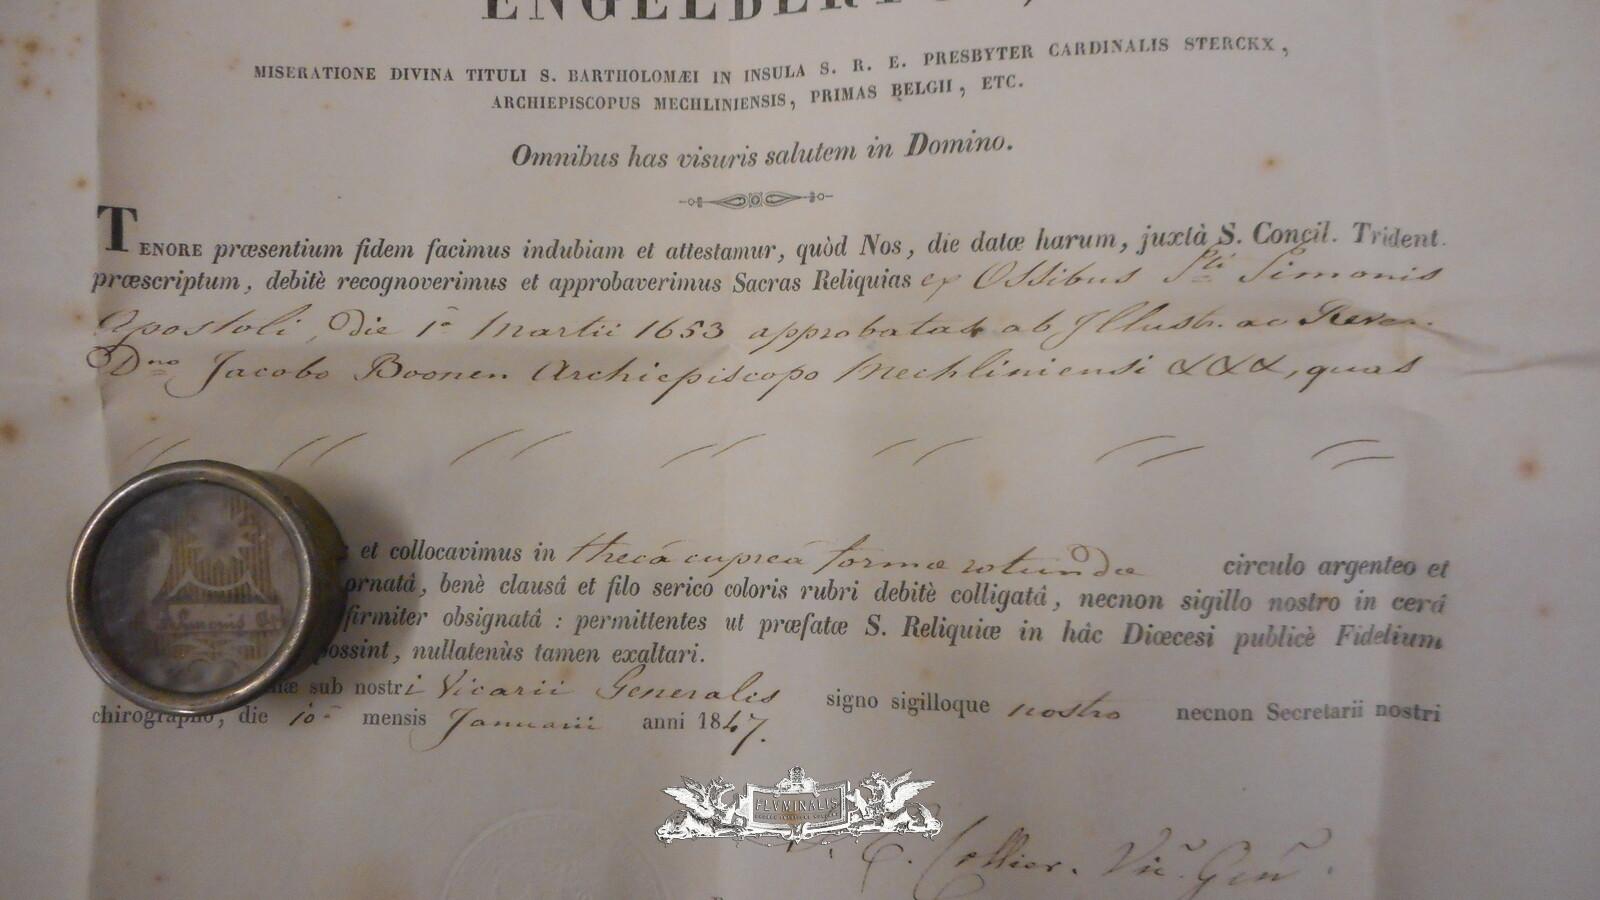 ENGELBERTUS,
MISERATIONE DIVINA TITULI S. BARTHOLOMÆI IN INSULA S. R. E. PRESBYTER CARDINALIS STERCKX,
ARCHIEPISCOPUS MECHLINIENSIS, PRIMAS BELGII, ETC.
Omnibus has visuris salutem in Domino.
TENORE præsentium fidem facimus indubiam et attestamur, quòd Nos, die datæ harum, juxtà S. Concil. Trident.
præscriptum, debitè recognoverimus et approbaverimus Sacras Reliquias ex Ossibus Sti Simonis
Apostoli, Die 1â Martii 1653 approbatas ab Illustr. ac Rever.
Dno Jacobo Boonen Archiepiscopo Mechliniensi &&&, quas
et collocavimus in thecâ cupreâ formæ rotundæ circulo argenteo et
ornatâ, benè clausâ et filo serico coloris rubri debitè colligatâ, necnon sigillo nostro in cerâ
firmiter obsignatâ : permittentes ut præfatæ S. Reliquiæ in hâc Diœcesi publicè Fidelium
possint, nullatenùs tamen exaltari.
sub nostri Vicarii Generalis signo sigilloque nostro necnon Secretarii nostri
chirographo, die 10â mensis Januarii anni 1847.
S. Simonis Ap.
FLVMINALIS
Collier. Vic. Gen.